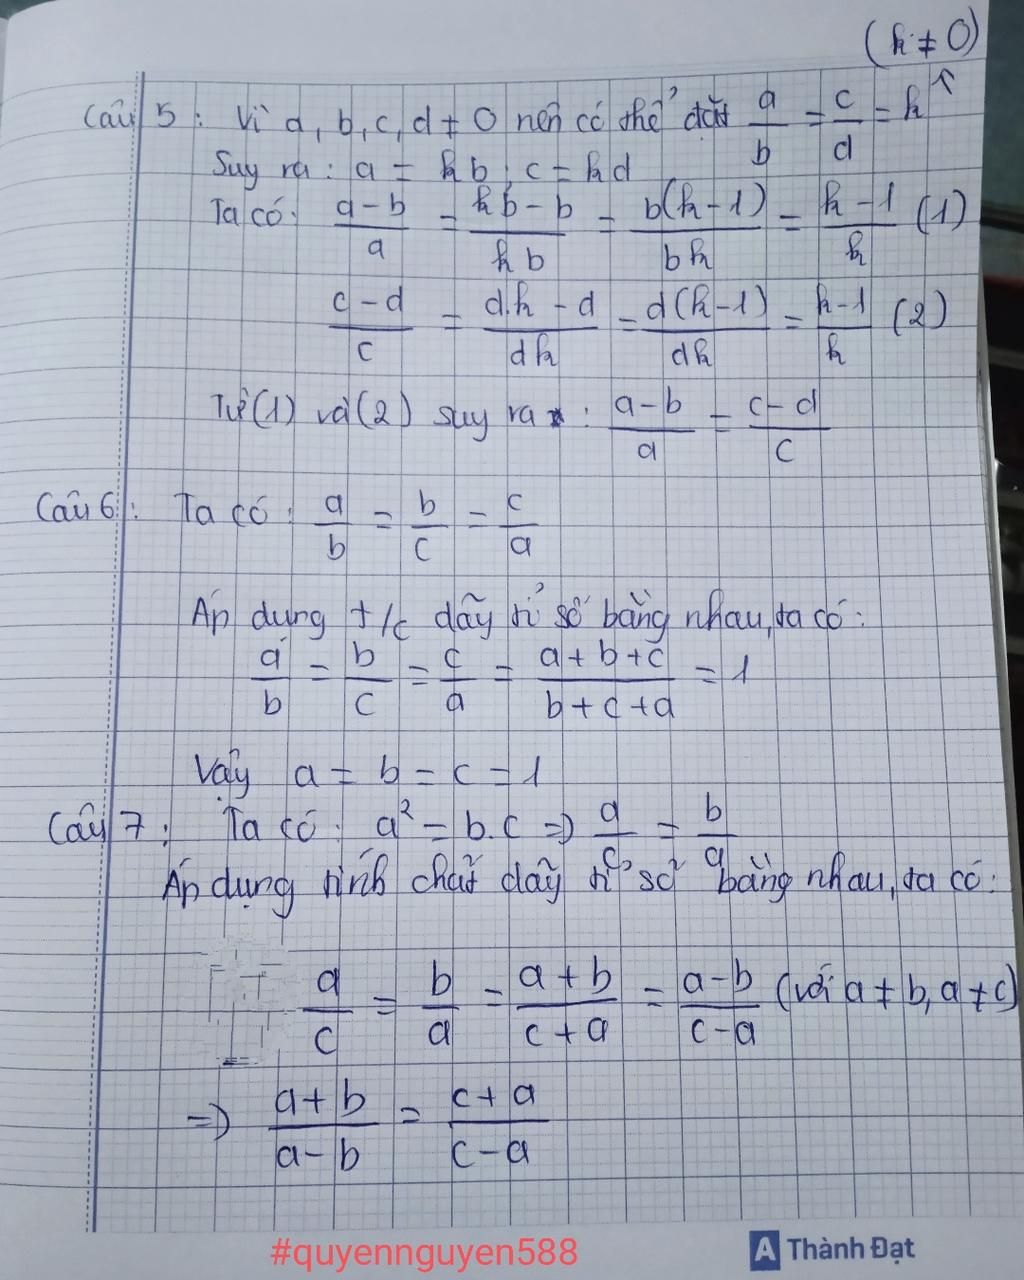 (k ≠ 0)
Câu 5 : Vì a, b, c, d ≠ 0 nên có thể đặt a/b = c/d = k ↑
Suy ra : a = kb ; c = kd
Ta có : (a-b)/a = (kb-b)/(kb) = b(k-1)/(bk) = (k-1)/k (1)
(c-d)/c = (d.k-d)/(dk) = d(k-1)/(dk) = (k-1)/k (2)
Từ (1) và (2) suy ra : (a-b)/a = (c-d)/c
Câu 6 : Ta có : a/b = b/c = c/a
Áp dụng t/c dãy tỉ số bằng nhau, ta có :
a/b = b/c = c/a = (a+b+c)/(b+c+a) = 1
Vậy a = b = c = 1
Câu 7 : Ta có : a² = b.c => a/c = b/a
Áp dụng tính chất dãy tỉ số bằng nhau, ta có :
a/c = b/a = (a+b)/(c+a) = (a-b)/(c-a) (với a ≠ b, a ≠ c)
=> (a+b)/(a-b) = (c+a)/(c-a)
#quyennguyen588
A Thành Đạt